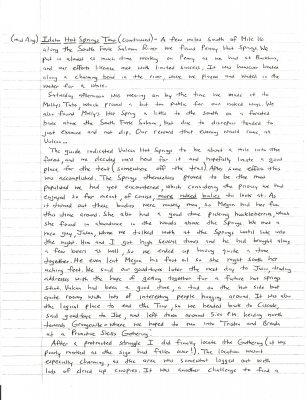 (mid Aug) Idaho Hot Springs Time (continued) - A few miles South of Mile 16
along the South Fork Salmon River we found Penny Hot Springs. We
put in almost as much time working on Penny as we had at Buckhorn,
and our efforts likewise met with limited success. It was however located
along a charming bend in the river, where we played and waded in the
water for a while.
Saturday afternoon was moving on by the time we made it to
Molly's Tubs, which proved a bit too public for our naked ways. We
also found Molly's Hot Spring a little to the south on a forested
track above the South Fork Salmon, but due to disrepair tended to
just examine and not dip. Our reward that evening would come, at
Vulcan.
The guide indicated Vulcan Hot Springs to be about a mile into the
forest, and we decided we'd head for it and hopefully locate a good
place for the tent somewhere off the trail. After some effort this
was accomplished. The Springs themselves proved to be the most
populated we had yet encountered, which considering the privacy we had
enjoyed so far meant, of course, more naked bodies to look at. As
it turned out these bodies were mostly men, so Megan had her fun
this time around. She also had a good time picking huckleberries, which
she found in abundance in the woods above the Springs. We met a
nice guy, Juan, whom we talked with at the Springs until late into
the night. Him and I got high several times and he had brought along
a few beers as well, so we ended up having quite a time
together. He even lent Megan his foot oil so she might sooth her
aching feet. We said our good-byes later the next day to Juan, trading
addresses with the hope of getting together for a future hot springs
stint. Vulcan had been a good time, a tad on the hot side but
quite roomy with lots of interesting people hanging around. It was also
the logical place to end the Tour, so we headed back to Cascade,
said good-bye to Ike, and left town around 5:00 P.M. heading north
towards Grangeville - where we hoped to run into Tristan and Brenda
at a Primitive Skills Gathering.
After a protracted struggle I did finally locate the Gathering (it was
poorly marked as the sign had fallen over!). The location wasn't
especially charming, as the area was somewhat logged out with
lots of dried up cowpies. It was another challenge to find a